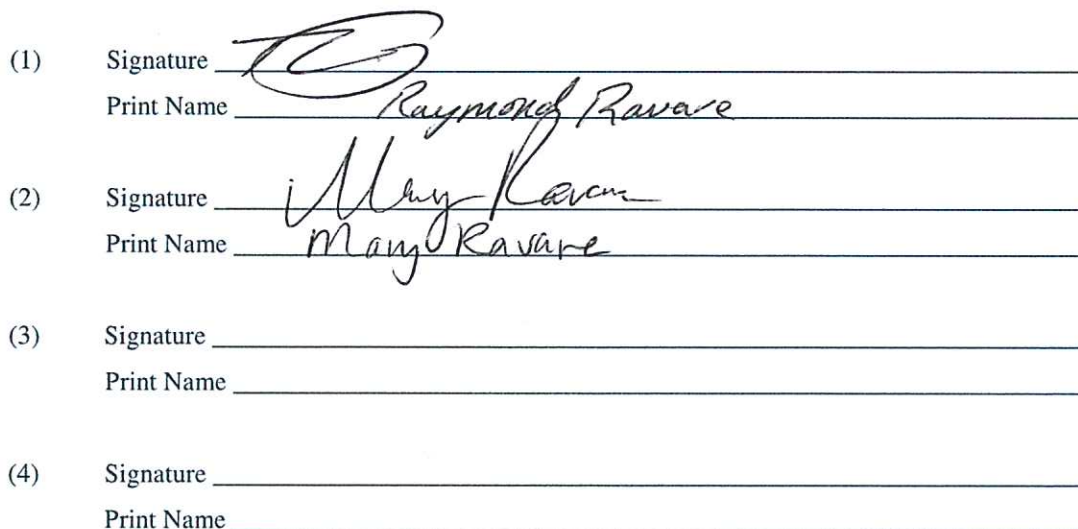 (1) Signature
Print Name Raymond Ravare
(2) Signature Mary Ravare
Print Name Mary Ravare
(3) Signature
Print Name
(4) Signature
Print Name